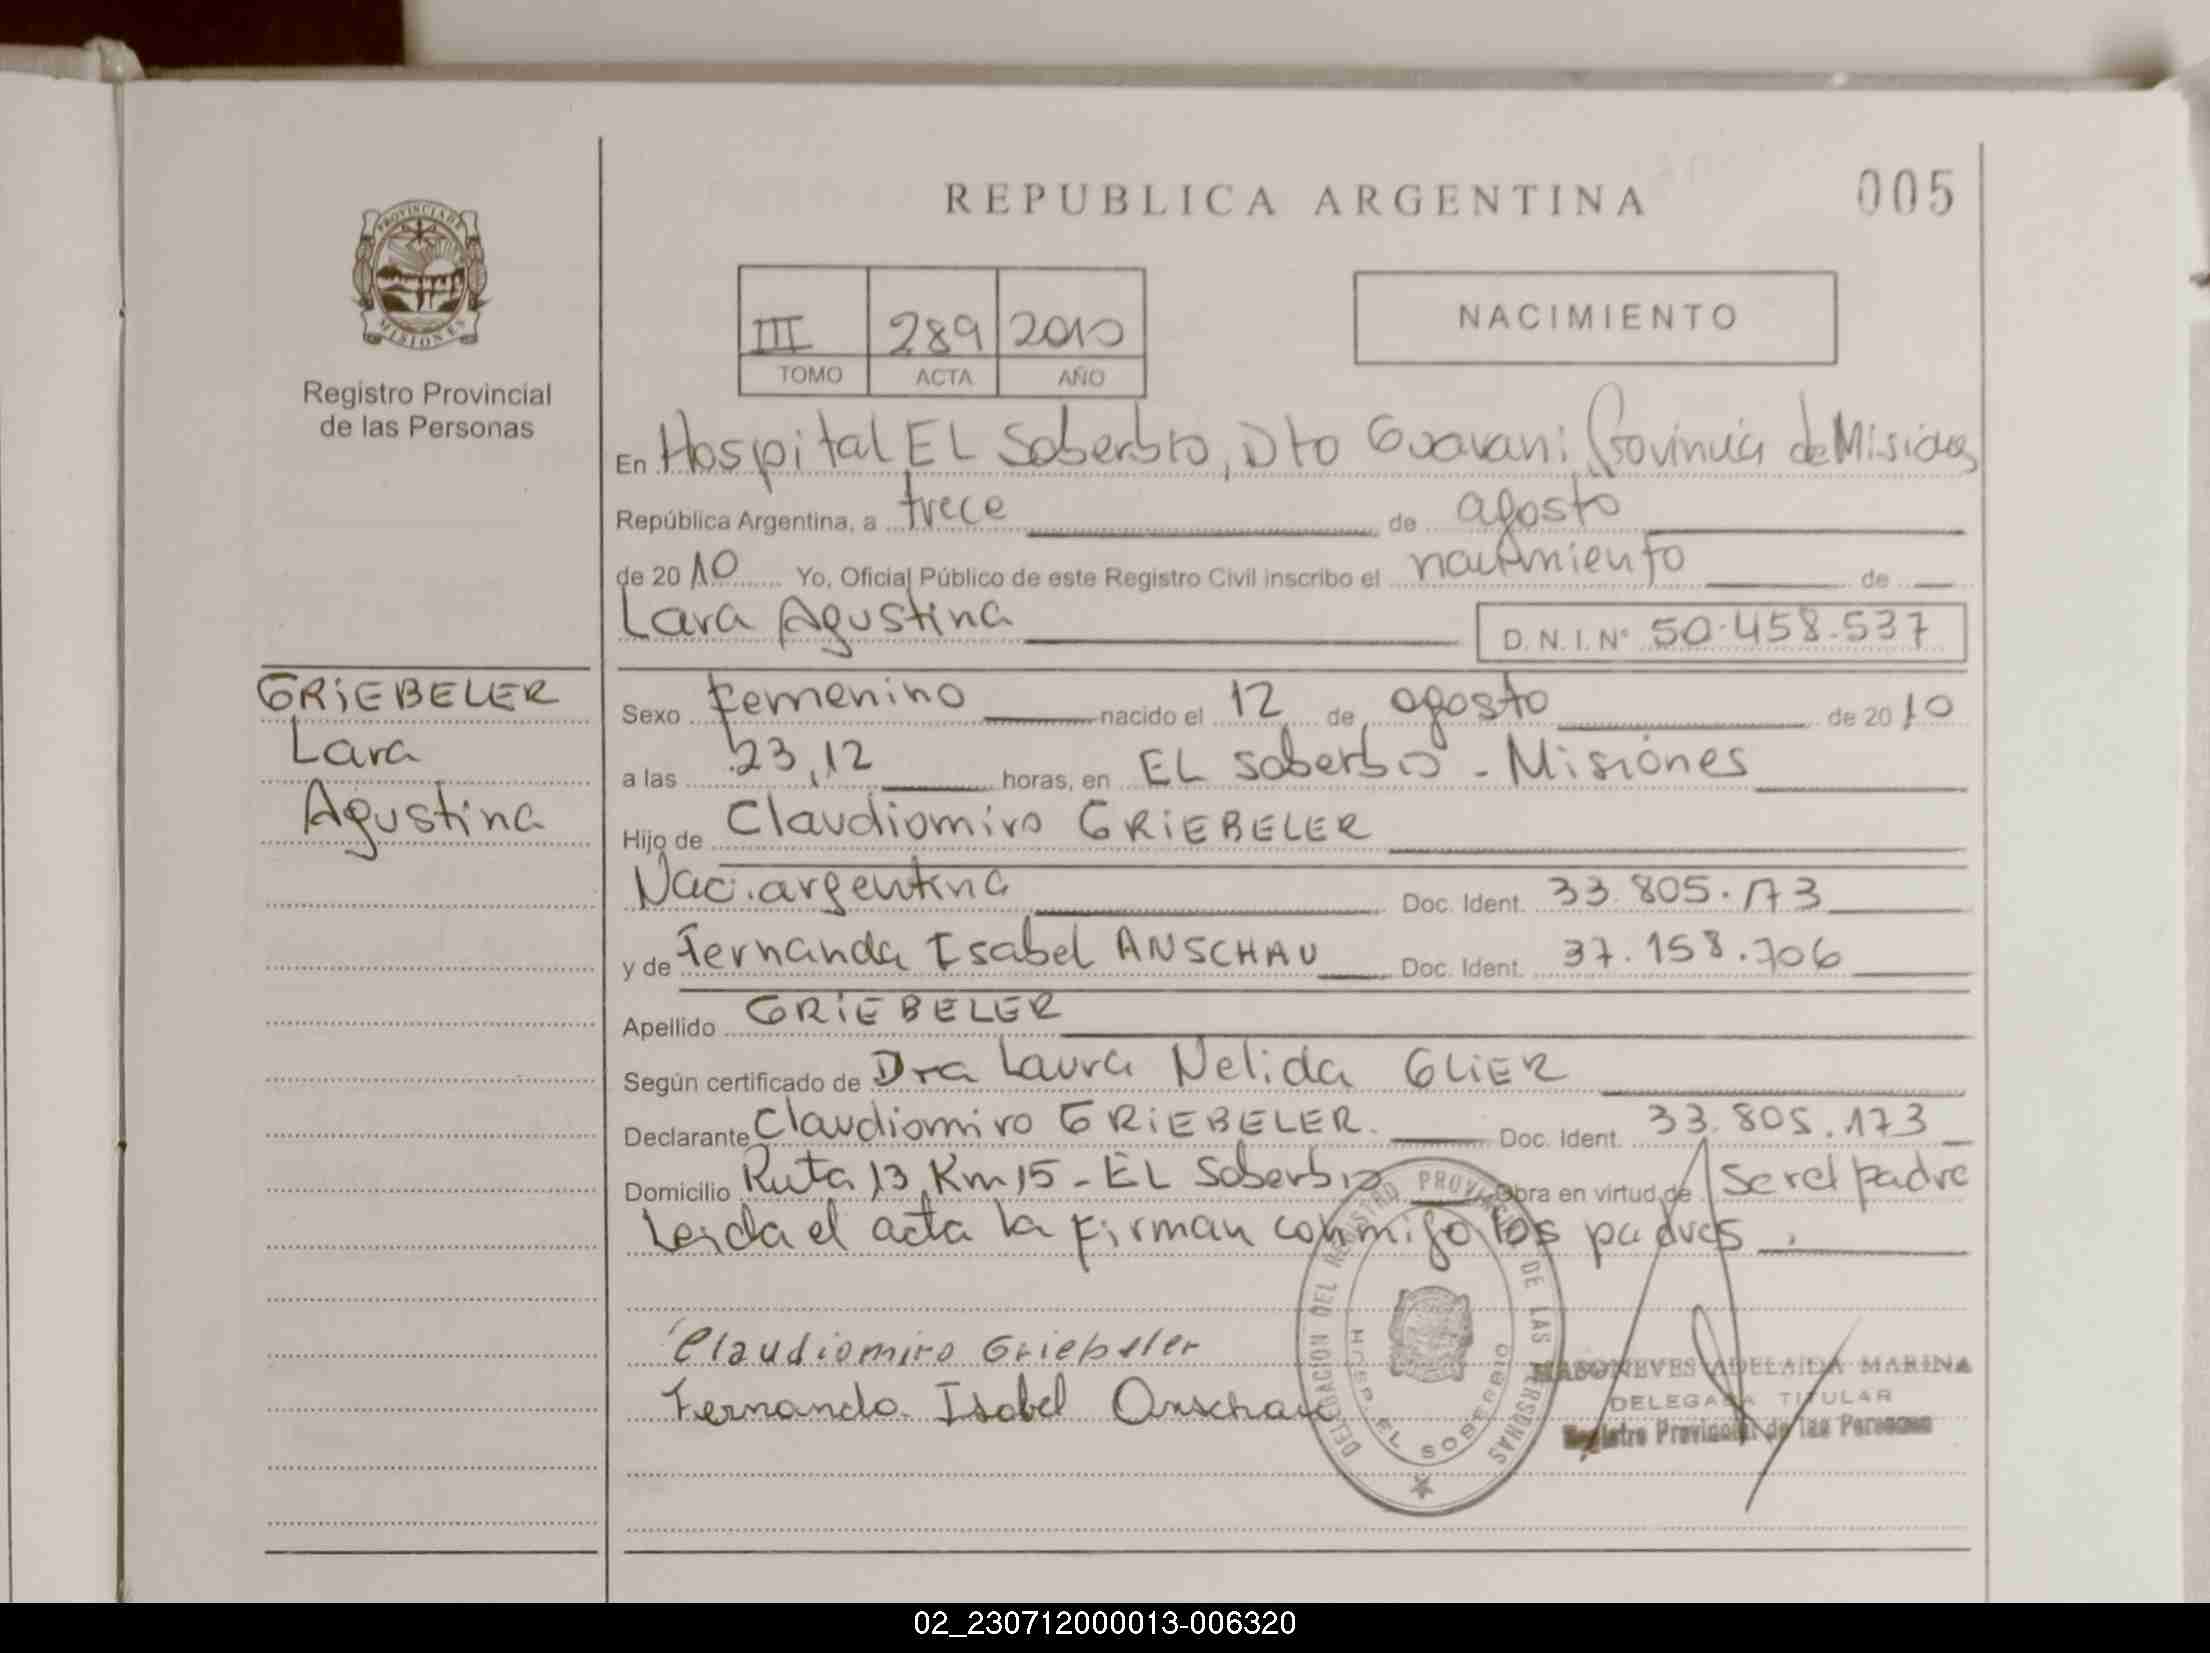 REPUBLICA ARGENTINA
005
PROVINCIA DE MISIONES
Registro Provincial
de las Personas
III 289 2010
TOMO ACTA AÑO
NACIMIENTO
En Hospital EL Soberbio, Dto Guarani, Provincia de Misiones
República Argentina, a trece de agosto
de 2010 Yo, Oficial Público de este Registro Civil inscribo el nacimiento de
Lara Agustina D.N.I.Nº 50.458.537
GRIEBELER
Lara
Agustina
Sexo Femenino nacido el 12 de agosto de 2010
a las 23,12 horas, en EL Soberbio - Misiones
Hijo de Claudiomiro GRIEBELER
Nac. argentina Doc. Ident. 33.805.173
y de Fernanda Isabel ANSCHAU Doc. Ident. 37.158.706
Apellido GRIEBELER
Según certificado de Dra Laura Nelida GLIER
Declarante Claudiomiro GRIEBELER. Doc. Ident. 33.805.173
Domicilio Ruta 13 Km 15 - EL Soberbio Obra en virtud de Ser el padre
Leida el acta la firman conmigo los padres.
Claudiomiro Griebeler
Fernanda Isabel Anschau
DELEGACION DEL REGISTRO PROVINCIAL DE LAS PERSONAS
HOSP. EL SOBERBIO
ADELAIDA MARINA
DELEGADA TITULAR
Registro Provincial de las Personas
02_230712000013-006320